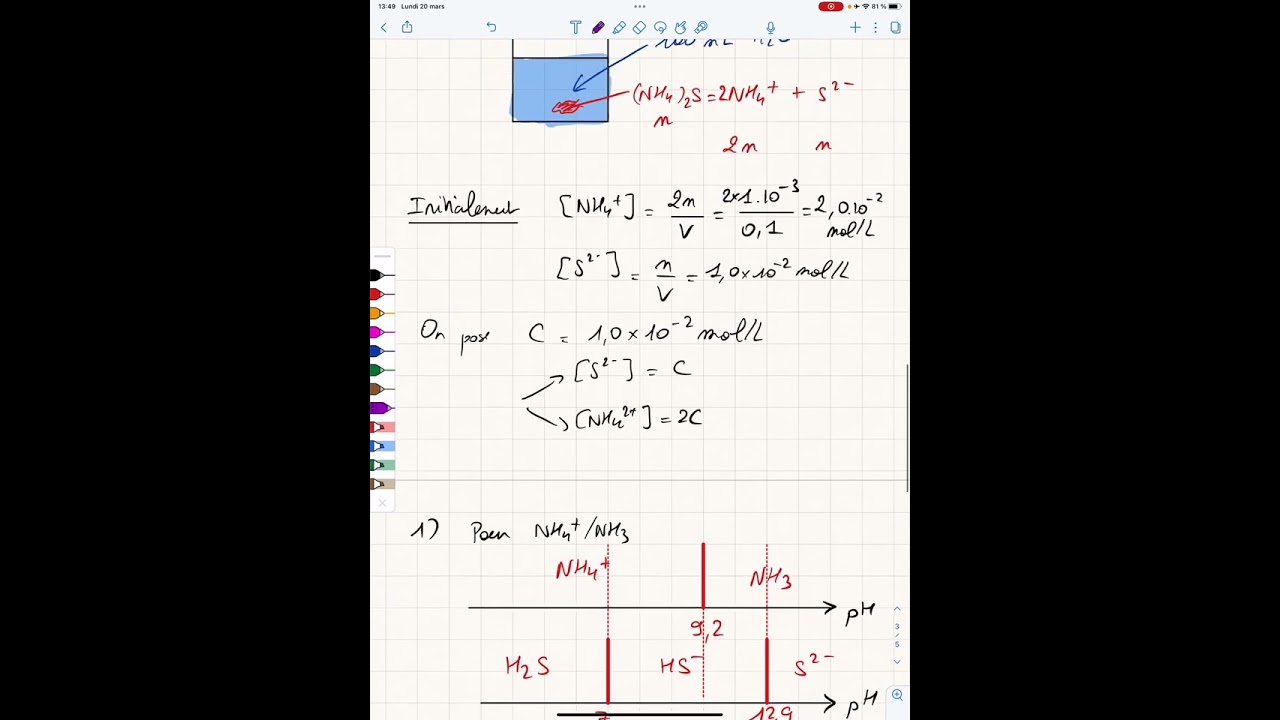 13:49 Lundi 20 mars
81 %
(NH4)2S = 2NH4+ + S2-
n
2n n
Initialement [NH4+] = 2n/V = 2×1.10-3/0,1 = 2,0.10-2 mol/L
[S2-] = n/V = 1,0×10-2 mol/L
On pose C = 1,0×10-2 mol/L
[S2-] = C
[NH42+] = 2C
1) Pour NH4+/NH3
NH4+ NH3
pH
9,2
H2S HS- S2-
pH
12,9
3/5